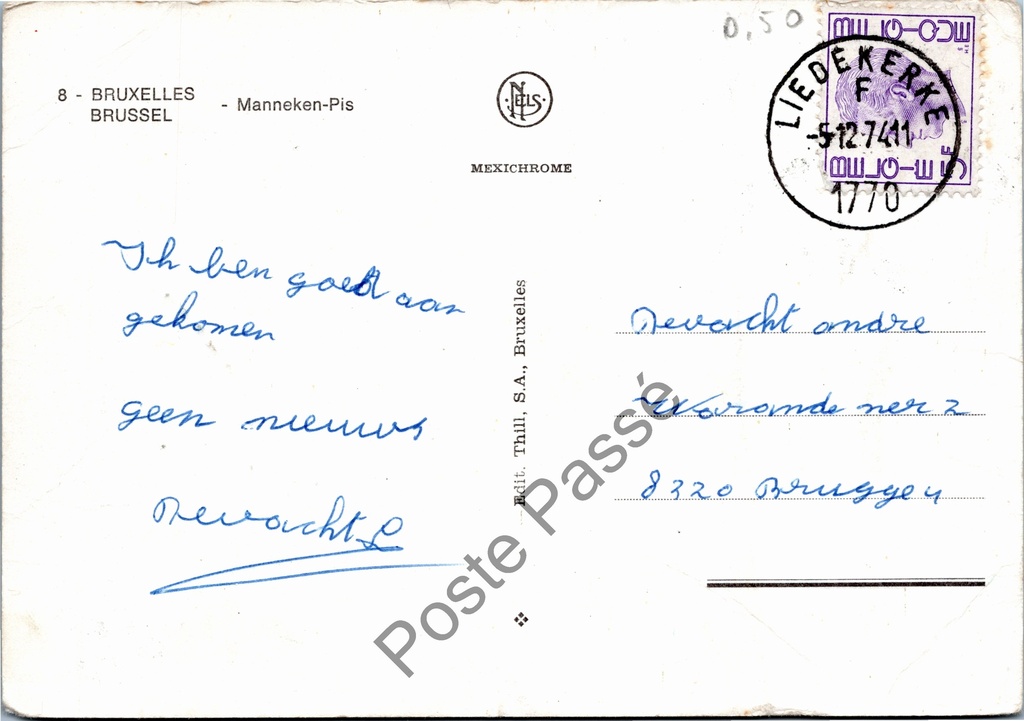 0,50
8 - BRUXELLES
BRUSSEL
- Manneken-Pis
NELS
MEXICHROME
BELGIQUE
BELGIE 5F
LIEDEKERKE
F
-5-12-74 11
1770
Ik ben goed aan
gekomen
geen nieuws
Devacht L
Edit. Thill, S.A., Bruxelles
Devacht andre
Warande 2
8320 Bruggen
Poste Passé